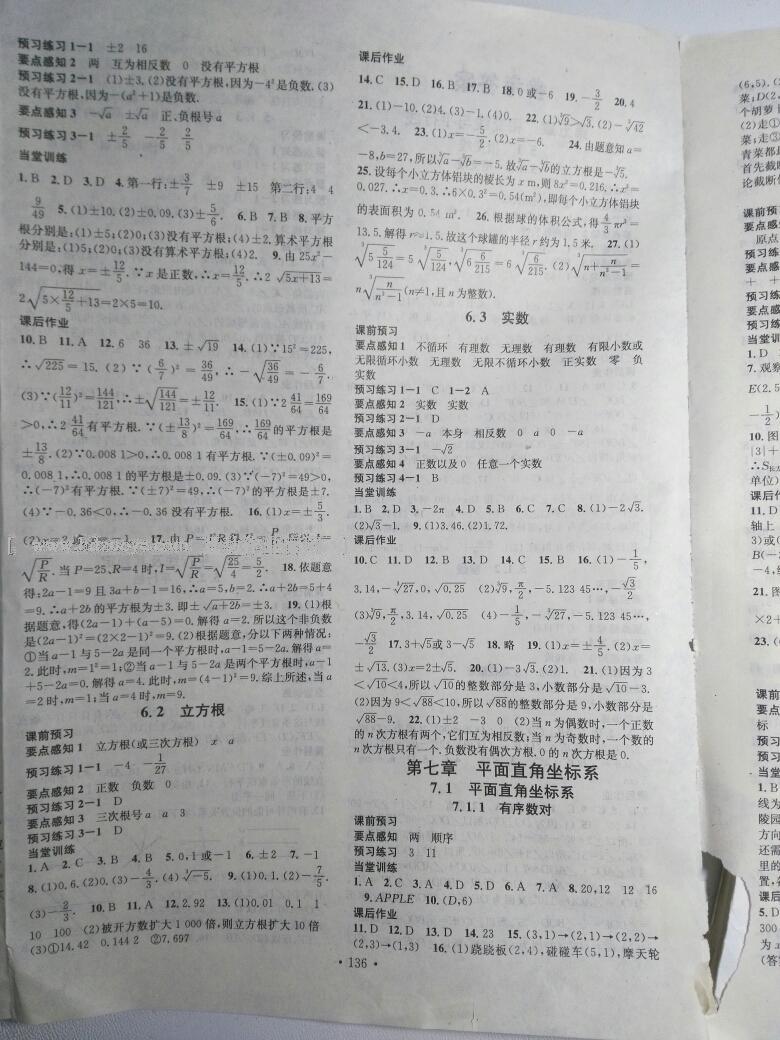 预习练习1-1 ±2 16
要点感知2 两 互为相反数 0 没有平方根
预习练习2-1 (1)±3.(2)没有平方根,因为-4²是负数.(3)
没有平方根,因为-(a²+1)是负数.
要点感知3 -√a ±√a 正、负根号a
预习练习3-1 ±2/5 -2/5 2/5
当堂训练
1.B 2.D 3.D 4.第一行:±3/7 ±9 ±15 第二行:4 4
9/49 5.(1)±10.(2)±0.09.(3)±5/6. 6.B 7.B 8.平方
根分别是:(1)±5;(2)0;(3)没有平方根;(4)±2.算术平方根
分别是:(1)5;(2)0;(3)没有算术平方根;(4)2. 9.由25x²-
144=0,得x=±12/5.∵x是正数,∴x=12/5.∴2√(5x+13)=
2√(5×12/5+13)=2×5=10.
课后作业
10.B 11.A 12.6 36 13.±√19 14.(1)∵15²=225,
∴√225=15.(2)∵(6/7)²=36/49,∴-√(36/49)=-6/7.
(3)∵(12/11)²=144/121,∴±√(144/121)=±12/11. 15.(1)∵2 41/64=169/64
>0,∴2 41/64有平方根.∵(±13/8)²=169/64,∴169/64的平方根是
±13/8.(2)∵0.008 1>0,∴0.008 1有平方根.∵(±0.09)²=
0.008 1,∴0.008 1的平方根是±0.09.(3)∵(-7)²=49>0,
∴(-7)²有平方根.∵(±7)²=49,∴(-7)²的平方根是±7.
(4)∵-0.36<0,∴-0.36没有平方根. 16.(1)x=±5/3.
17.由P=I²R得
√(P/R).当P=25、R=4时,I=√(P/R)=√(25/4)=5/2. 18.依题意
得:2a-1=9且3a+b-1=16,∴a=5,b=2.∴a+2b=5+4
=9.∴a+2b的平方根为±3.即±√(a+2b)=±3. 19.(1)根
据题意,得(2a-1)+(a-5)=0.解得a=2.所以这个非负数
是(2a-1)²=(2×2-1)²=9.(2)根据题意,分以下两种情况:
①当a-1与5-2a是同一个平方根时,a-1=5-2a.解得a=
2.此时,m=1²=1;②当a-1与5-2a是两个平方根时,a-1
+5-2a=0.解得a=4.此时,m=(4-1)²=9.综上所述,当a
=2时,m=1;当a=4时,m=9.
6.2 立方根
课前预习
要点感知1 立方根(或三次方根) x a
预习练习1-1 -4 -1/27
要点感知2 正数 负数 0
预习练习2-1 D
要点感知3 三次根号a a 3
预习练习3-1 D
当堂训练
1.A 2.C 3.B 4.B 5.0,1或-1 6.±2 7.-1
8.(1)0.6.(2)0.(3)-4/3.(4)∛-5. 9.(1)0.1.(2)-7/5.
(3)-2/3. 10.B 11.A 12.2.92 13.(1)0.01 0.1 1
10 100 (2)被开方数扩大1 000倍,则立方根扩大10倍
(3)①14.42 0.144 2 ②7.697
课后作业
14.C 15.D 16.B 17.B 18.0或-6 19.-3/2 20.4
21.(1)-10.(2)4.(3)-1.(4)0. 22.(1)∛9>√3.(2)-∛42
<-3.4. 23.(1)x=-5/2.(2)x=-6. 24.由题意知a=
-8,b=27,所以∛a-∛b=-5.故∛a-∛b的立方根是-∛5.
25.设每个小立方体铝块的棱长为x m,则8x³=0.216.∴x³=
0.027.∴x=0.3.∴6×0.3²=0.54(m²),即每个小立方体铝块
的表面积为0.54 m². 26.根据球的体积公式,得4/3πr³=
13.5.解得r≈1.5.故这个球罐的半径r约为1.5米. 27.(1)
∛(5 5/124)=5∛(5/124),∛(6 6/215)=6∛(6/215).(2)∛(n+n/(n³-1))=
n∛(n/(n³-1))(n≠1,且n为整数).
6.3 实数
课前预习
要点感知1 不循环 有理数 无理数 有理数 有限小数或
无限循环小数 无理数 无限不循环小数 正实数 零 负
实数
预习练习1-1 C 1-2 A
要点感知2 实数 实数
预习练习2-1 D
要点感知3 -a 本身 相反数 0 a 0 -a
预习练习3-1 -√2
要点感知4 正数以及0 任意一个实数
预习练习4-1 B
当堂训练
1.B 2.D 3.-2π 4.D 5.B 6.C 7.C 8.(1)-2√3.
(2)√3-1. 9.(1)3.46.(2)1.72.
课后作业
10.C 11.D 12.B 13.D 14.D 15.B 16.(1)-1/5,
3.14,-∛27,0,√0.25 (2)∛9,π/2,-5.123 45…,-√3/2
(3)∛9,π/2,3.14,√0.25 (4)-1/5,-∛27,-5.123 45…,
-√3/2 17.3+√5或3-√5 18.略 19.(1)x=±4/5.(2)x=
±√13.(3)x=2±√5. 20.(1)-3√3.(2)1. 21.(1)因为3
<√10<4,所以√10的整数部分是3,小数部分是√10-3.
(2)因为9<√88<10,所以√88的整数部分是9,小数部分是
√88-9. 22.(1)±2 -3 0 (2)当n为偶数时,一个正数
的n次方根有两个,它们互为相反数;当n为奇数时,一个数的
n次方根只有一个.负数没有偶次方根.0的n次方根是0.
第七章 平面直角坐标系
7.1 平面直角坐标系
7.1.1 有序数对
课前预习
要点感知 两 顺序
预习练习 3 11
当堂训练
1.A 2.C 3.A 4.D 5.D 6.A 7.A 8.20,12 12 16
9.APPLE 10.(D,6)
课后作业
11.D 12.D 13.D 14.23 15.(3,1)→(2,1)→(2,2)→
(2,3)→(1,3) 16.(1)跷跷板(2,4),碰碰车(5,1),摩天轮
·136·